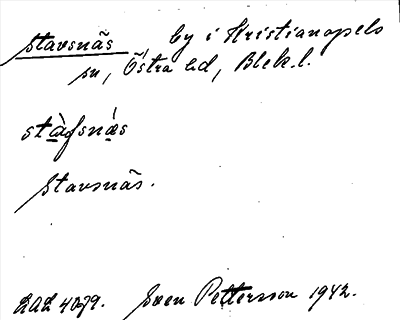 Stavsnäs by i Kristianopels
sn, Östra hd, Blek. l.
stàfsnǽs
Stavsnäs.
LAL 4079. Sven Pettersson 1942.